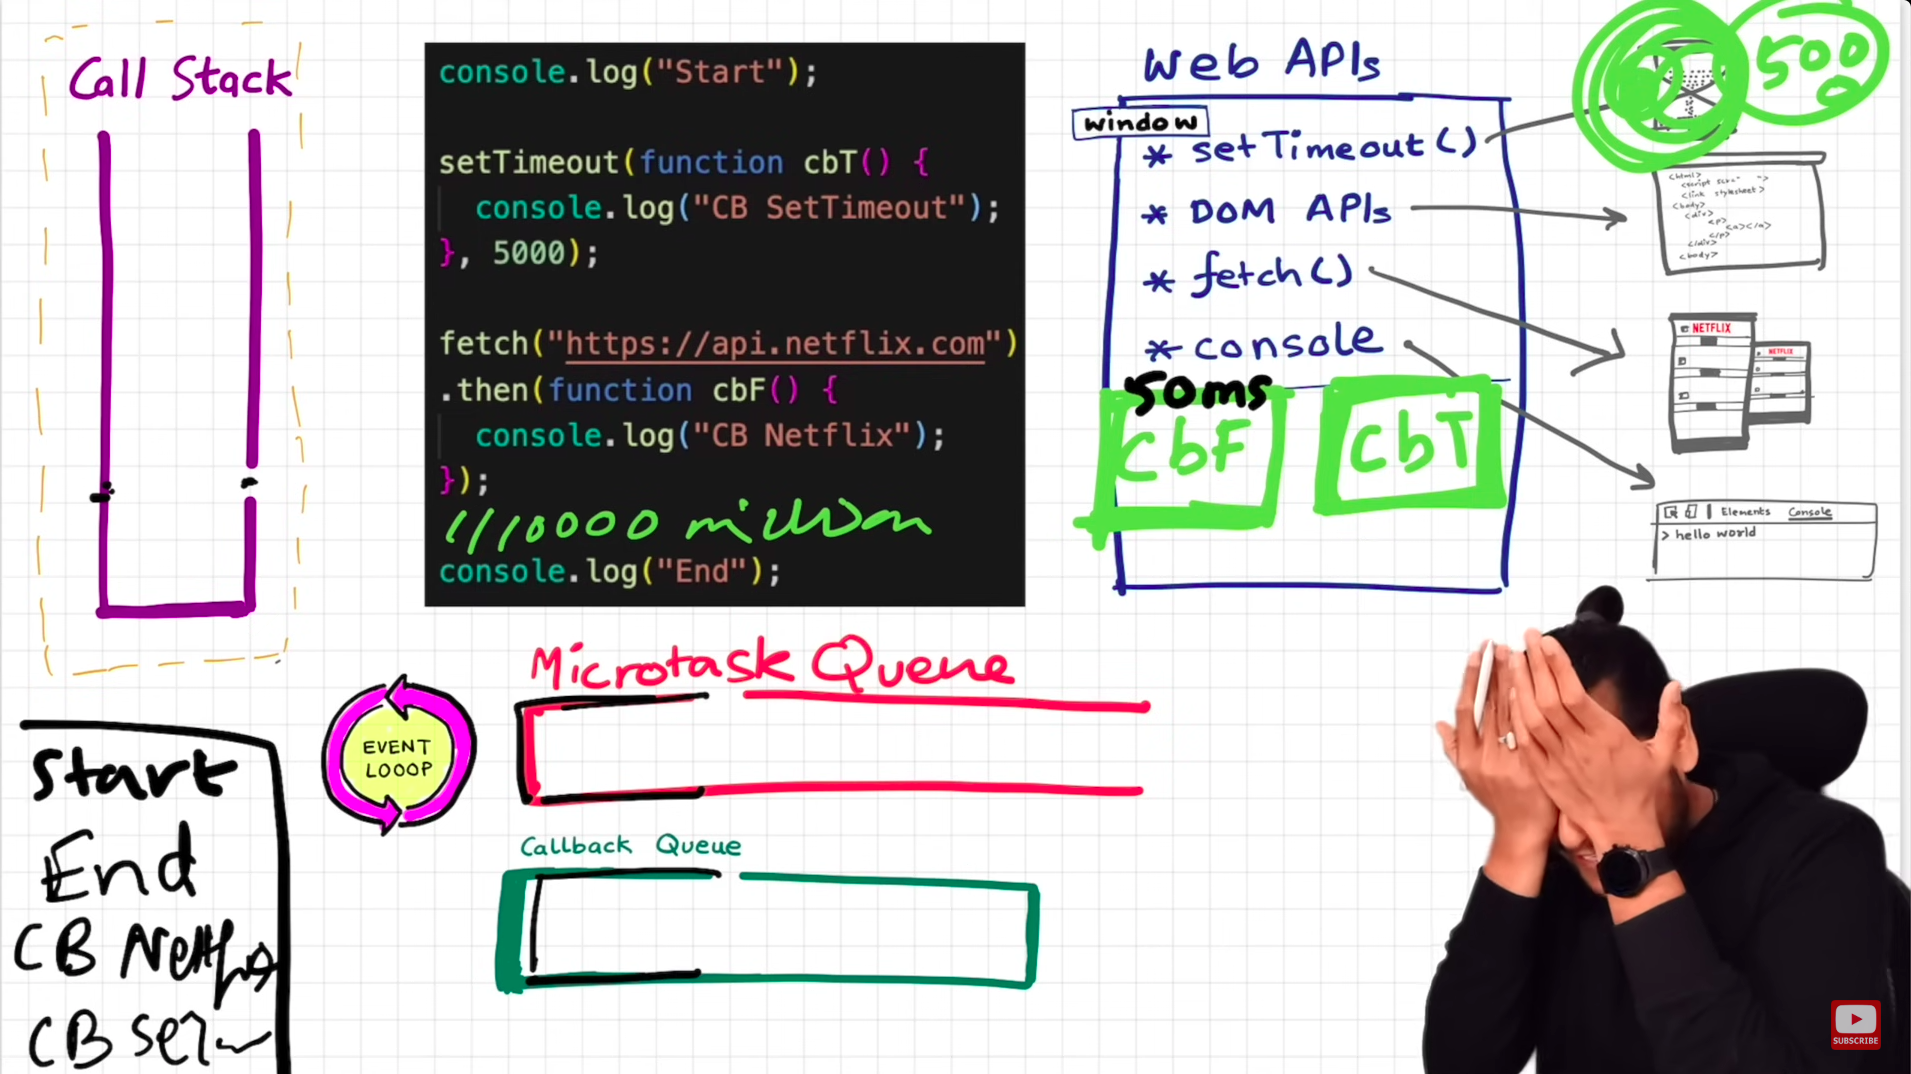 Call Stack
console.log("Start");
setTimeout(function cbT() {
console.log("CB SetTimeout");
}, 5000);
fetch("https://api.netflix.com")
.then(function cbF() {
console.log("CB Netflix");
});
//10000 million
console.log("End");
Web APIs
window
* setTimeout()
* DOM APIs
* fetch()
* console
50ms
CbF
CbT
500
<html>
<link stylesheet>
<body>
<div>
<p>
<a></a>
</p>
</div>
<body>
NETFLIX
NETFLIX
Elements Console
> hello world
Microtask Queue
EVENT
LOOOP
Callback Queue
Start
End
CB
CB
SUBSCRIBE